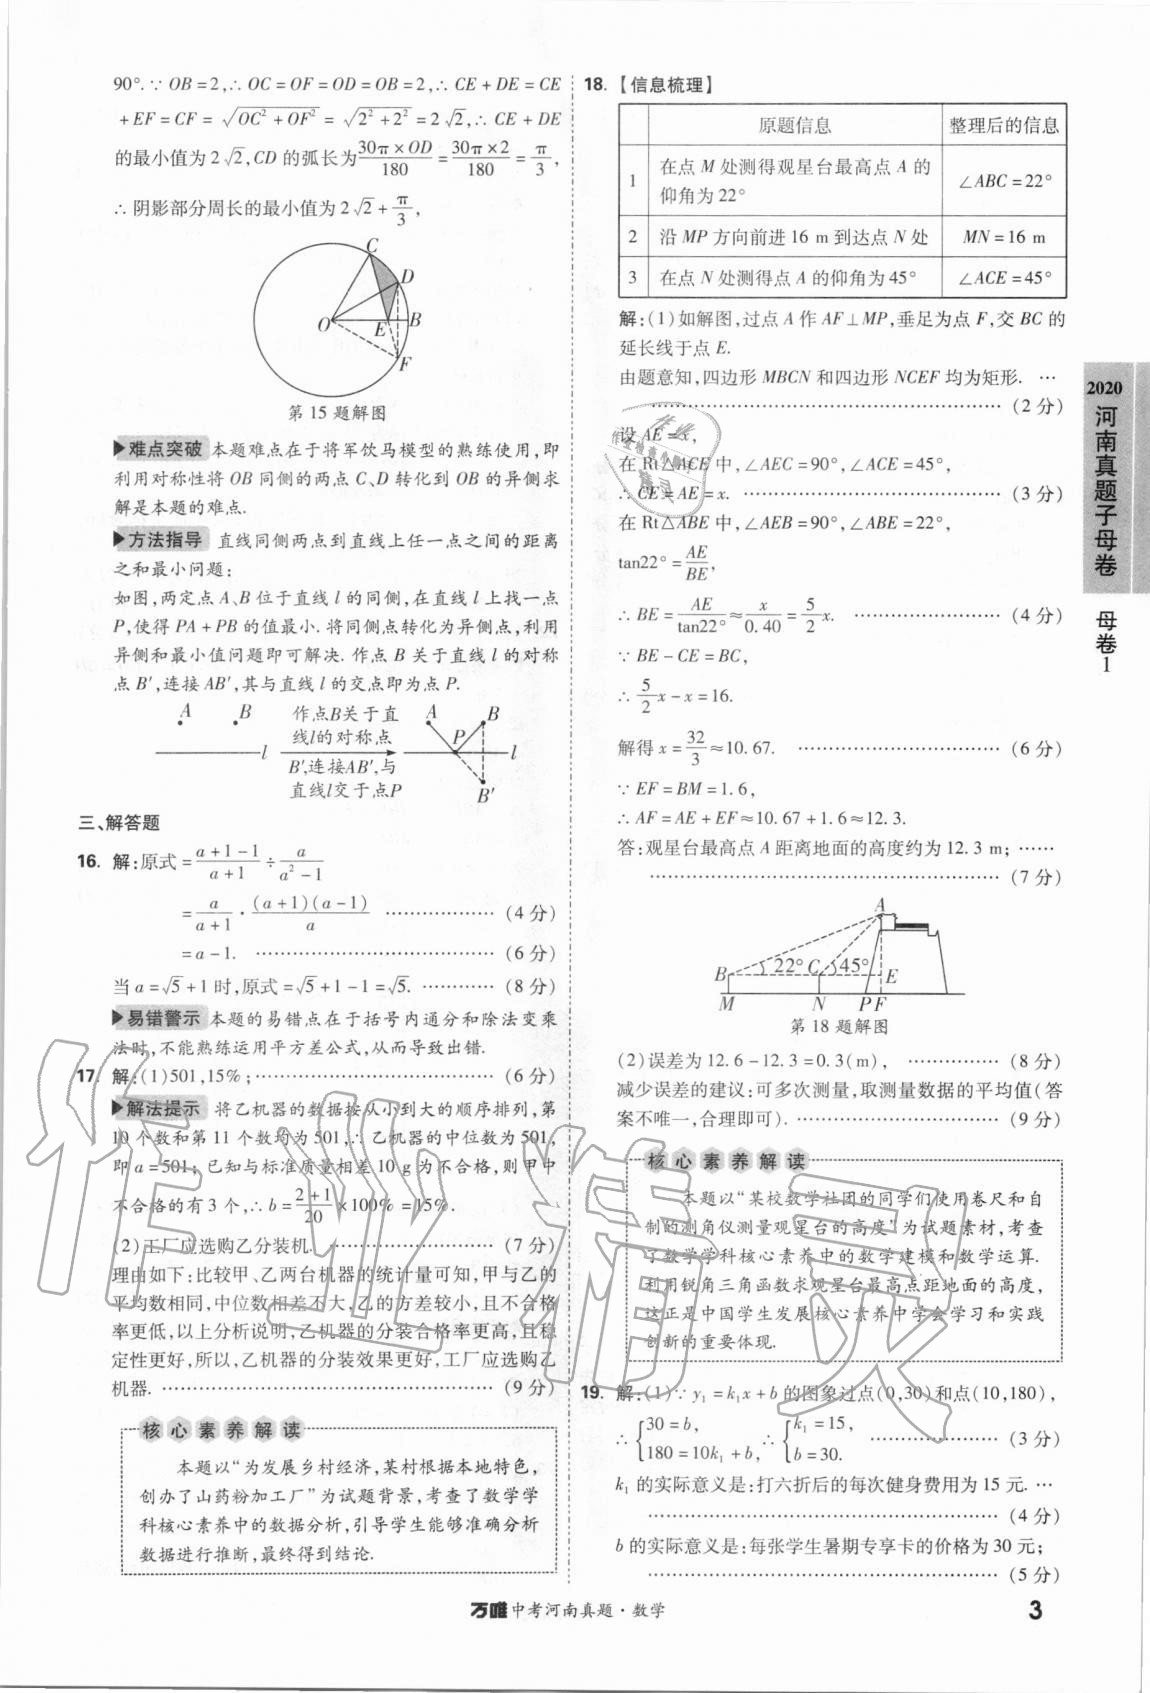 90°.∵ OB=2,∴ OC=OF=OD=OB=2,∴ CE+DE=CE
+EF=CF=√(OC²+OF²)=√(2²+2²)=2√2,∴ CE+DE
的最小值为2√2,CD的弧长为30π×OD/180=30π×2/180=π/3,
∴ 阴影部分周长的最小值为2√2+π/3,
C
D
O
E
B
F
第15题解图
▶难点突破 本题难点在于将军饮马模型的熟练使用,即
利用对称性将OB同侧的两点C、D转化到OB的异侧求
解是本题的难点.
▶方法指导 直线同侧两点到直线上任一点之间的距离
之和最小问题:
如图,两定点A、B位于直线l的同侧,在直线l上找一点
P,使得PA+PB的值最小.将同侧点转化为异侧点,利用
异侧和最小值问题即可解决.作点B关于直线l的对称
点B′,连接AB′,其与直线l的交点即为点P.
A B l
作点B关于直
线l的对称点
B′,连接AB′,与
直线l交于点P
A B P l B′
三、解答题
16. 解:原式=(a+1-1)/(a+1)÷a/(a²-1)
=a/(a+1)·(a+1)(a-1)/a ……………… (4分)
=a-1. ……………………………… (6分)
当a=√5+1时,原式=√5+1-1=√5. ………… (8分)
▶易错警示 本题的易错点在于括号内通分和除法变乘
法时,不能熟练运用平方差公式,从而导致出错.
17. 解:(1)501,15%;……………………………… (6分)
▶解法提示 将乙机器的数据按从小到大的顺序排列,第
10个数和第11个数均为501,∴ 乙机器的中位数为501,
即a=501;已知与标准质量相差10 g为不合格,则甲中
不合格的有3个,∴ b=(2+1)/20×100%=15%.
(2)工厂应选购乙分装机. …………………… (7分)
理由如下:比较甲、乙两台机器的统计量可知,甲与乙的
平均数相同,中位数相差不大,乙的方差较小,且不合格
率更低,以上分析说明,乙机器的分装合格率更高,且稳
定性更好,所以,乙机器的分装效果更好,工厂应选购乙
机器. …………………………………………… (9分)
核心素养解读
本题以“为发展乡村经济,某村根据本地特色,
创办了山药粉加工厂”为试题背景,考查了数学学
科核心素养中的数据分析,引导学生能够准确分析
数据进行推断,最终得到结论.
18. 【信息梳理】
原题信息 整理后的信息
1 在点M处测得观星台最高点A的仰角为22° ∠ABC=22°
2 沿MP方向前进16 m到达点N处 MN=16 m
3 在点N处测得点A的仰角为45° ∠ACE=45°
解:(1)如解图,过点A作AF⊥MP,垂足为点F,交BC的
延长线于点E.
由题意知,四边形MBCN和四边形NCEF均为矩形. …
……………………………………………… (2分)
设AE=x,
在Rt△ACE中,∠AEC=90°,∠ACE=45°,
∴ CE=AE=x. ………………………………… (3分)
在Rt△ABE中,∠AEB=90°,∠ABE=22°,
tan22°=AE/BE,
∴ BE=AE/tan22°≈x/0.40=5/2x. …………………… (4分)
∵ BE-CE=BC,
∴ 5/2x-x=16.
解得x=32/3≈10.67. ………………………… (6分)
∵ EF=BM=1.6,
∴ AF=AE+EF≈10.67+1.6≈12.3.
答:观星台最高点A距离地面的高度约为12.3 m;……
……………………………………………… (7分)
A
B 22° C 45° E
M N P F
第18题解图
(2)误差为12.6-12.3=0.3(m), ………… (8分)
减少误差的建议:可多次测量,取测量数据的平均值(答
案不唯一,合理即可). ………………………… (9分)
核心素养解读
本题以“某校数学社团的同学们使用卷尺和自
制的测角仪测量观星台的高度”为试题素材,考查
了数学学科核心素养中的数学建模和数学运算.
利用锐角三角函数求观星台最高点距地面的高度,
这正是中国学生发展核心素养中学会学习和实践
创新的重要体现.
19. 解:(1)∵ y₁=k₁x+b的图象过点(0,30)和点(10,180),
∴ {30=b, 180=10k₁+b, ∴ {k₁=15, b=30. ……………… (3分)
k₁的实际意义是:打六折后的每次健身费用为15元. …
……………………………………………… (4分)
b的实际意义是:每张学生暑期专享卡的价格为30元;
……………………………………………… (5分)
2020
河南真题子母卷
母卷1
万唯中考河南真题·数学
3
作业精灵